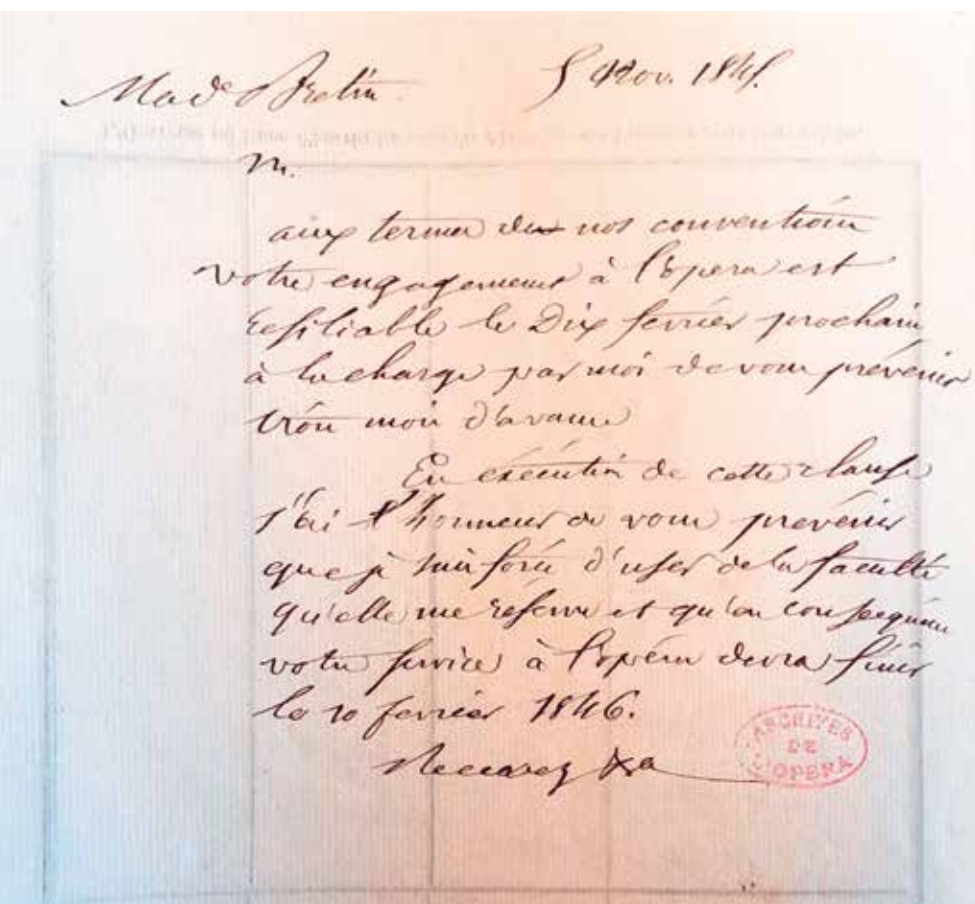 Made Bretin. 5 Nov. 1845.
M.
aux termes de nos conventions
votre engagement à l'opera est
resiliable le Dix fevrier prochain
à la charge par moi de vous prévenir
trois mois d'avance
En execution de cette clause
j'ai l'honneur de vous prevenir
que je suis forcé d'user de la faculté
qu'elle me reserve et qu'en consequence
votre service à l'opéra devra finir
le 10 fevrier 1846.
Recevez &a
ARCHIVES
DE
L'OPERA